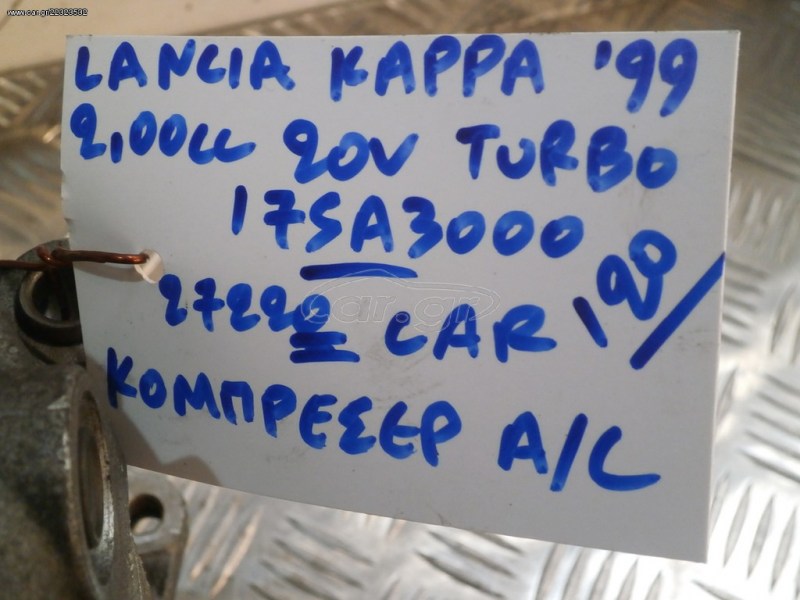 www.car.gr/22323532
LANCIA KAPPA '99
2,00cc 20V TURBO
175A3000
27222 CAR '20/
ΚΟΜΠΡΕΣΕΡ A/C
car.gr